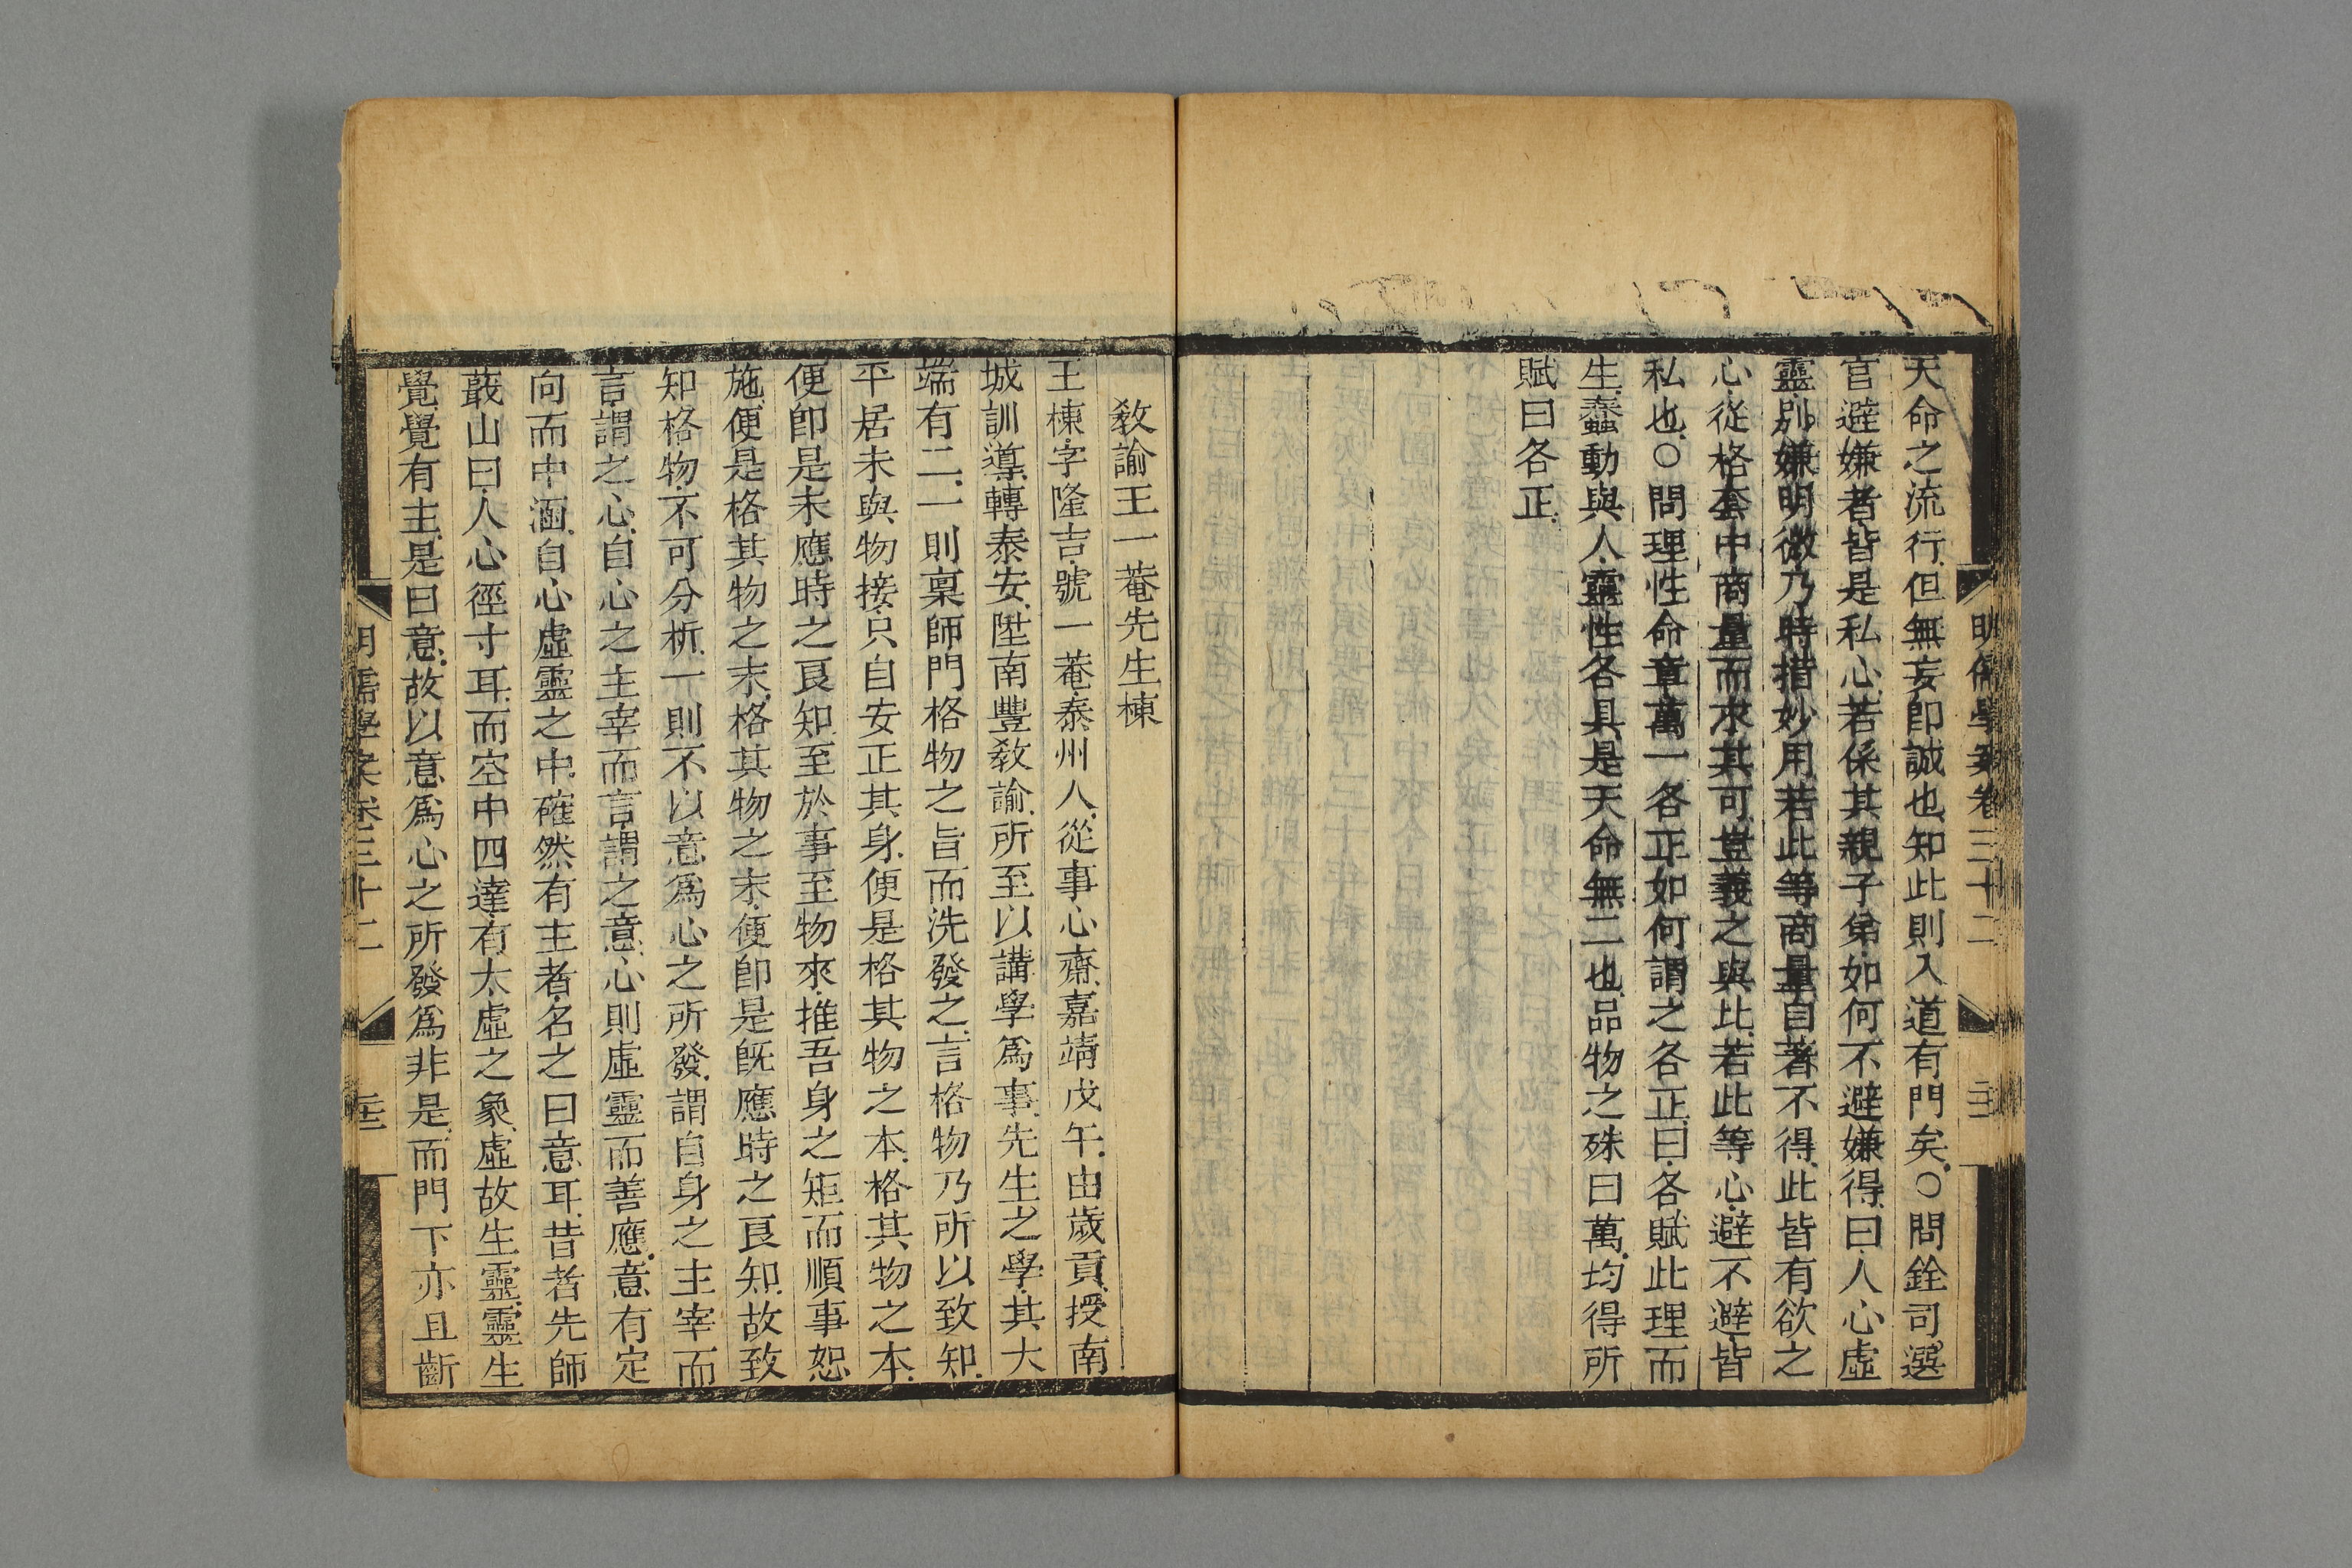 明儒學案卷三十二
天命之流行.但無妄卽誠也.知此則入道有門矣.○問銓司選
官避嫌者.皆是私心.若係其親子弟.如何不避嫌得.曰.人心虛
靈.別嫌明微.乃時措妙用.若此等商量.自著不得.此皆有欲之
心.從格套中商量.而求其可.豈義之與比.若此等心.避不避皆
私也.○問理性命章.萬一各正.如何謂之各正.曰.各賦此理而
生.蠢動與人.靈性各具.是天命無二也.品物之殊曰萬.均得所
賦曰各正.
教諭王一菴先生棟
王棟.字隆吉.號一菴.泰州人.從事心齋.嘉靖戊午.由歲貢.授南
城訓導.轉泰安.陞南豐教諭.所至以講學爲事.先生之學.其大
端有二.一則稟師門格物之旨而洗發之.言格物乃所以致知.
平居未與物接.只自安正其身.便是格其物之本.格其物之本.
便卽是未應時之良知.至於事至物來.推吾身之矩而順事恕
施.便是格其物之末.格其物之末.便卽是旣應時之良知.故致
知格物.不可分析.一則不以意爲心之所發.謂自身之主宰而
言.謂之心.自心之主宰而言.謂之意.心則虛靈而善應.意有定
向而中涵.自心虛靈之中.確然有主者.名之曰意耳.昔者先師
蕺山曰.人心徑寸耳.而空中四達.有太虛之象.虛故生靈.靈生
覺.覺有主.是曰意.故以意爲心之所發爲非是.而門下亦且齗
明儒學案卷三十二